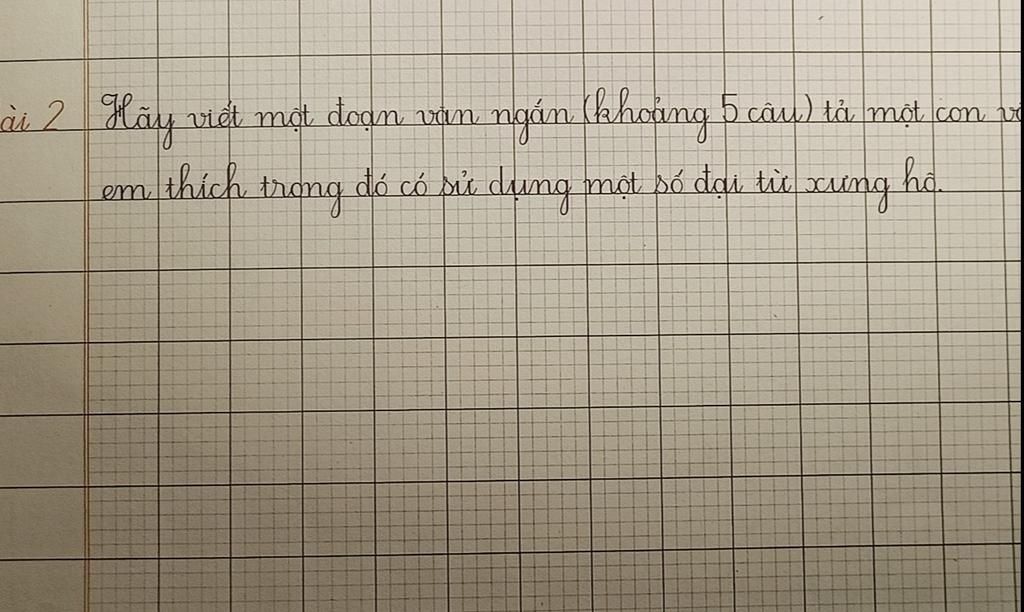 ài 2 Hãy viết một đoạn văn ngắn (khoảng 5 câu) tả một con
em thích trong đó có sử dụng một số đại từ xưng hô.